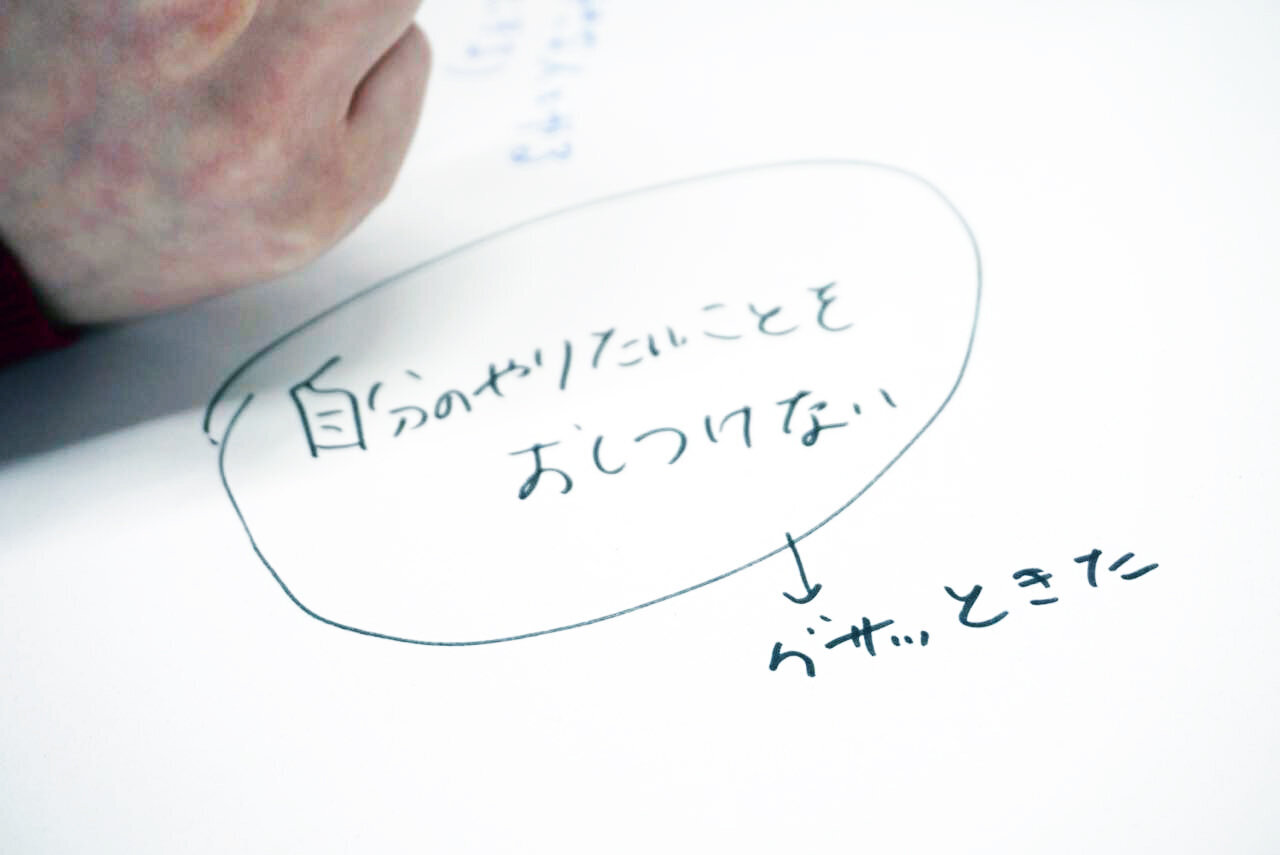 自分のやりたいことを
おしつけない
↓
グサッときた